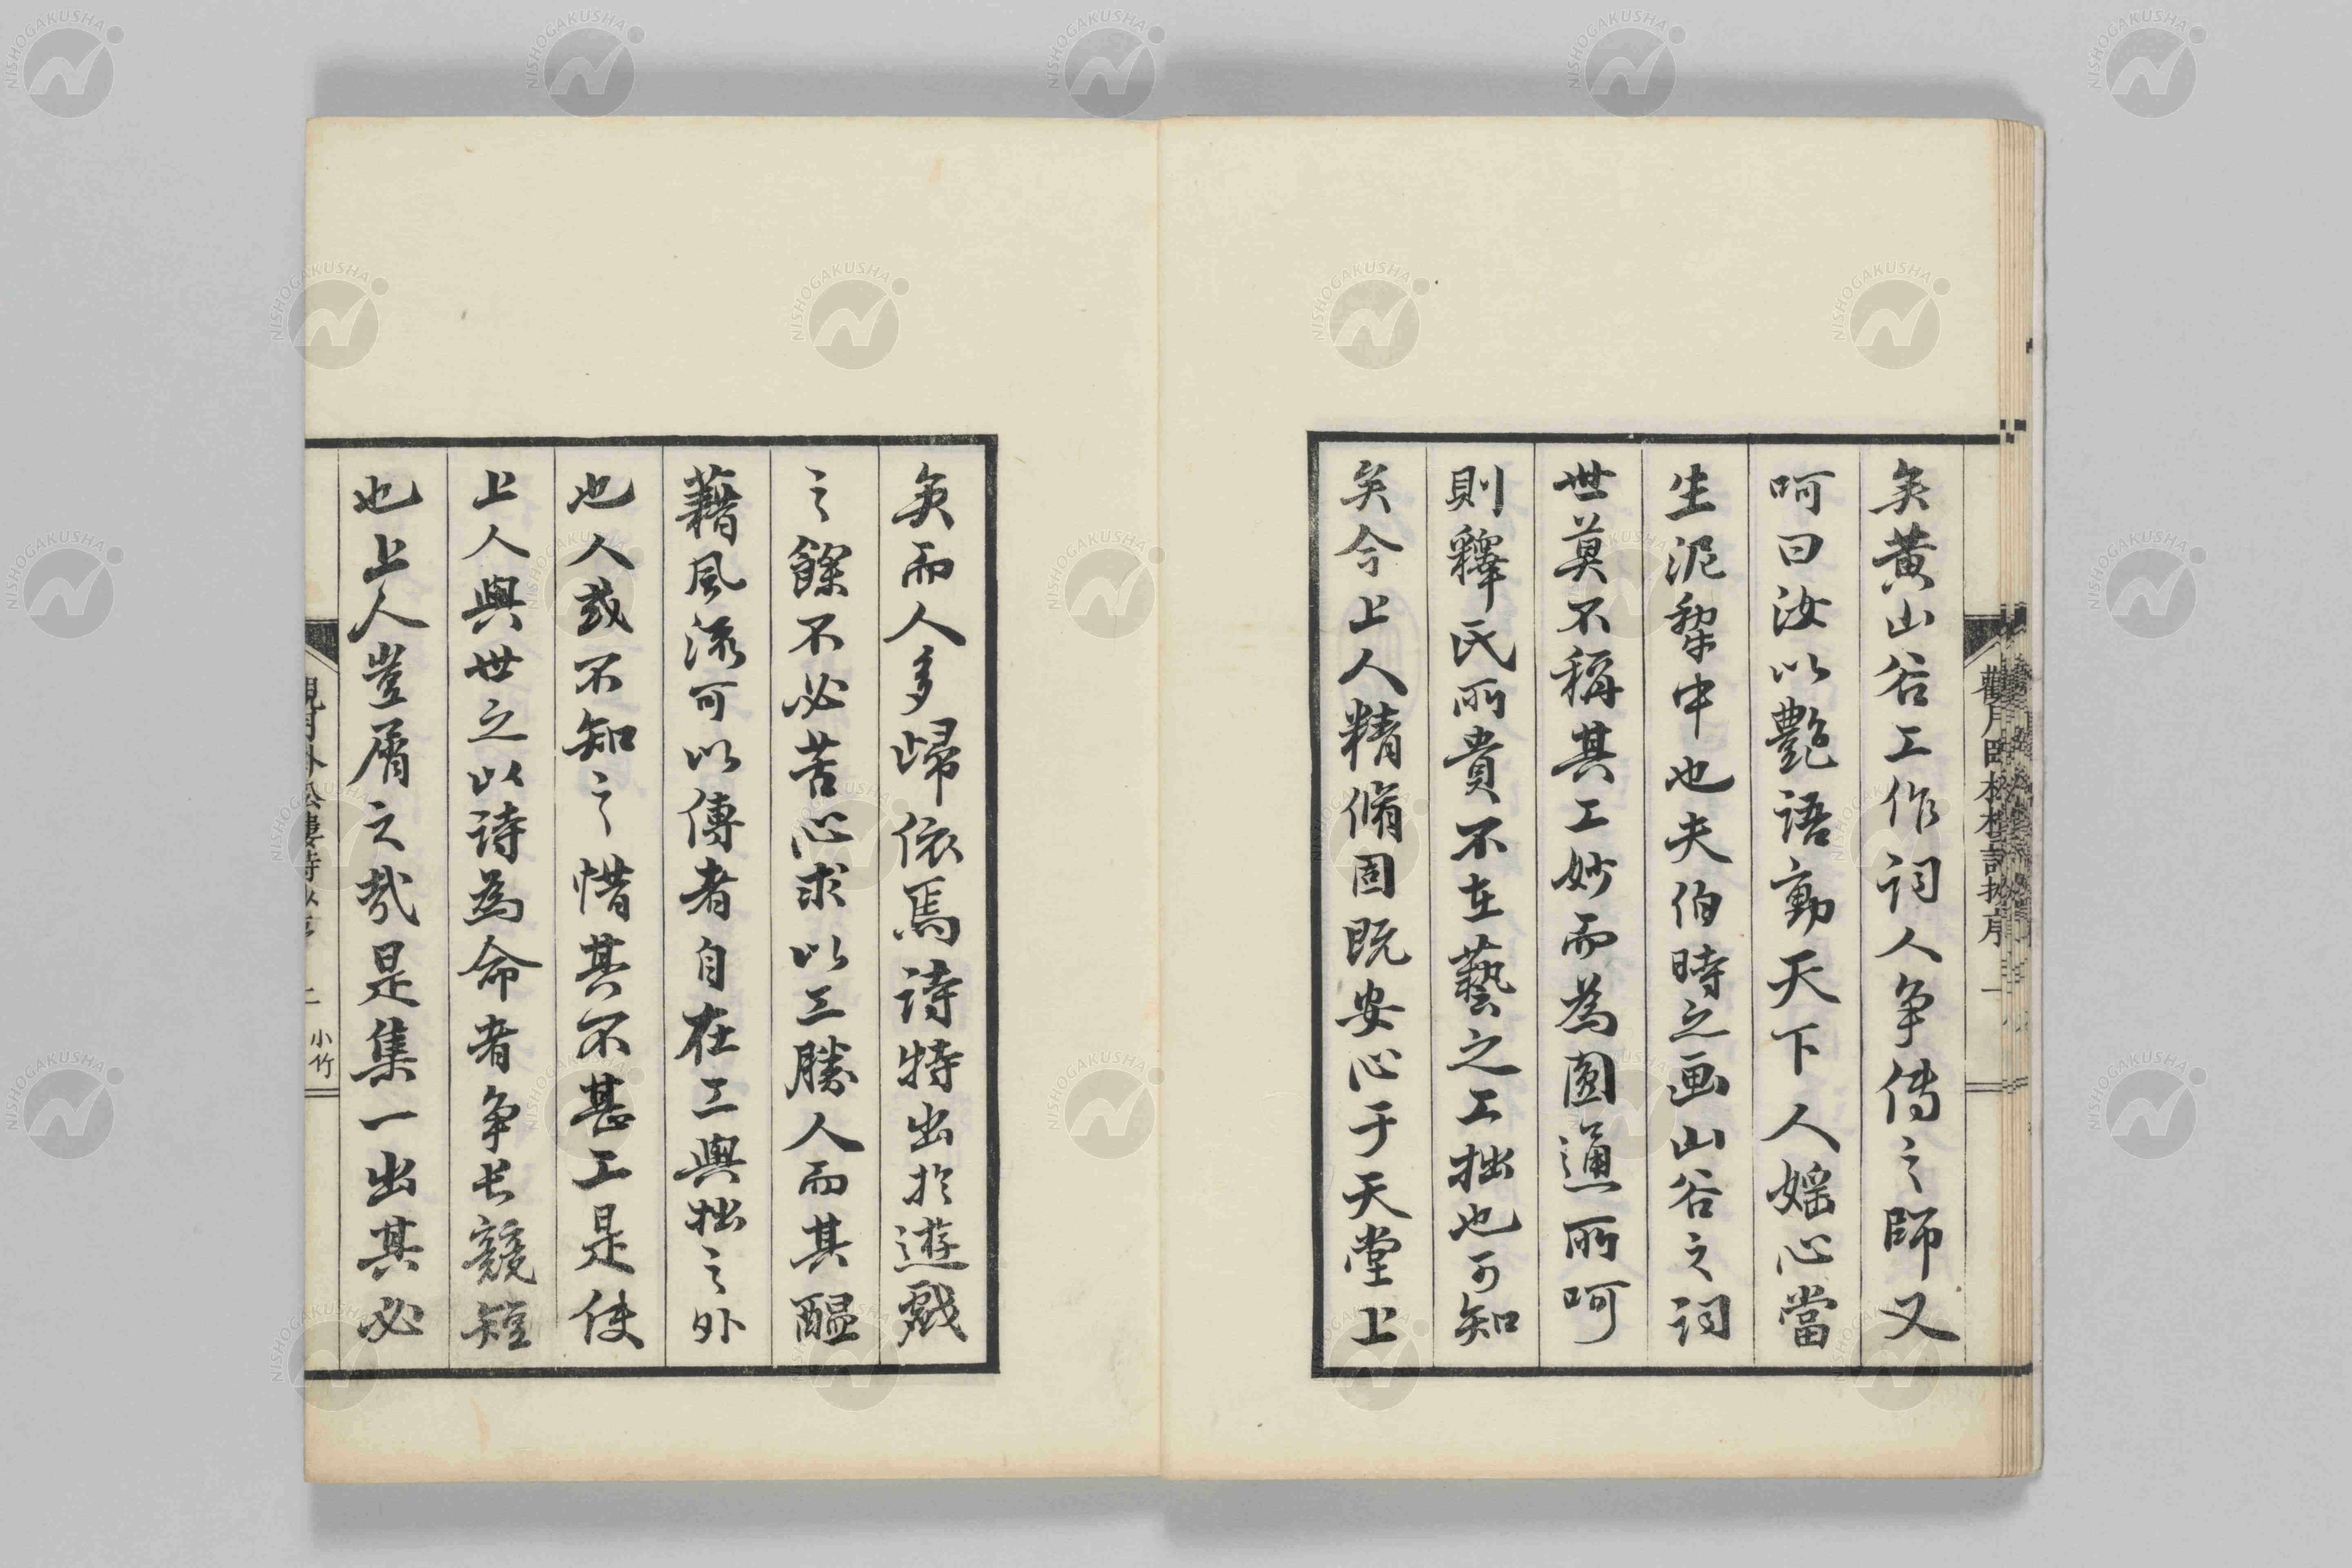 矣黄山谷工作詞人争傳之師又
呵曰汝以艶語動天下人婬心當
生泥犂中也夫伯時之画山谷之詞
世莫不稱其工妙而為圓通所呵
則釋氏所貴不在藝之工拙也可知
矣今上人精脩固既安心于天堂上
矣而人多歸依焉詩特出於遊戯
之餘不必苦心求以工勝人而其醖
藉風流可以傳者自在工與拙之外
也人或不知之惜其不甚工是使
上人與世之以詩為命者争长競短
也上人豈屑之哉是集一出其必
二 小竹